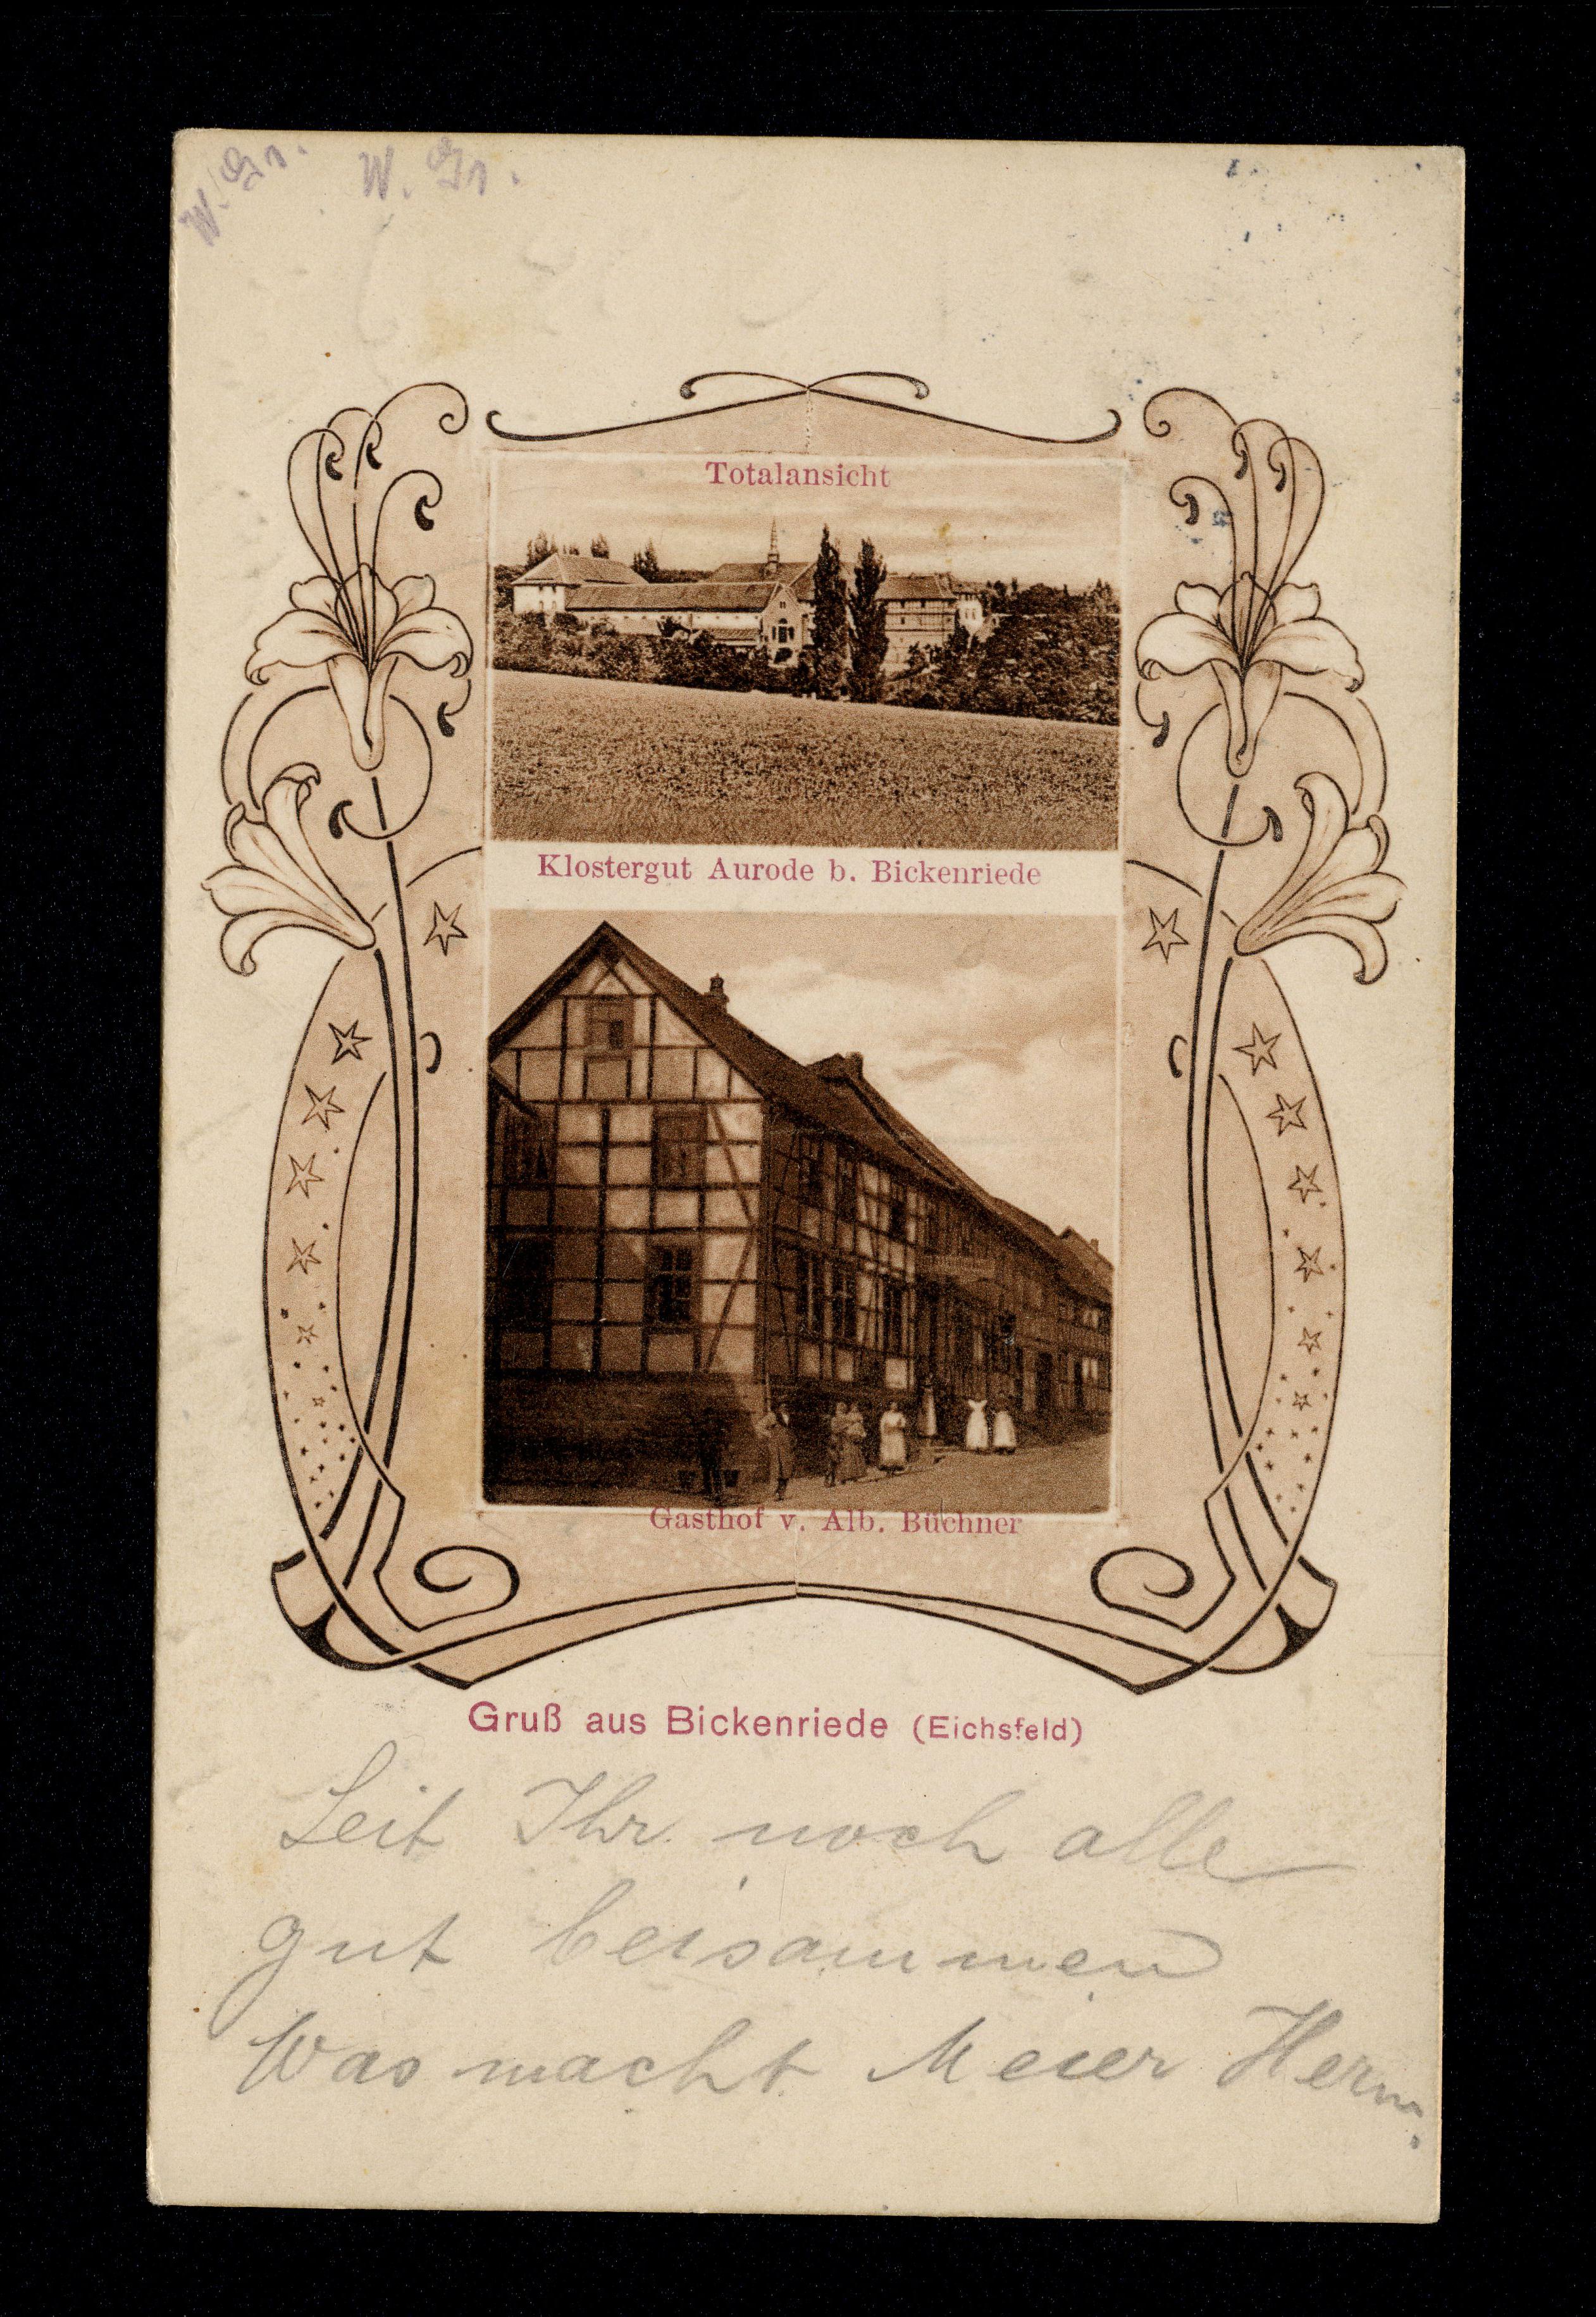 W. Gr. W. Gr.
Totalansicht
Klostergut Aurode b. Bickenriede
Gasthof v. Alb. Büchner
Gruß aus Bickenriede (Eichsfeld)
Seit Ihr noch alle
gut beisammen
Was macht Meier Herm.